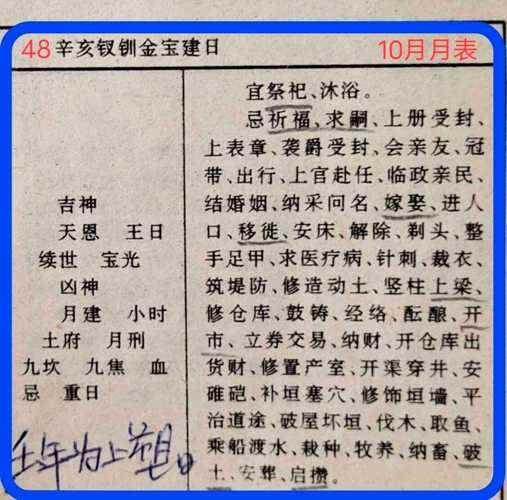 48 辛亥钗钏金宝建日 10月月表
吉神
天恩 王日
续世 宝光
凶神
月建 小时
土府 月刑
九坎 九焦 血
忌 重日
宜祭祀、沐浴。
忌祈福、求嗣、上册受封、
上表章、袭爵受封、会亲友、冠
带、出行、上官赴任、临政亲民、
结婚姻、纳采问名、嫁娶、进人
口、移徙、安床、解除、剃头、整
手足甲、求医疗病、针刺、裁衣、
筑堤防、修造动土、竖柱上梁、
修仓库、鼓铸、经络、酝酿、开
市、立券交易、纳财、开仓库出
货财、修置产室、开渠穿井、安
碓硙、补垣塞穴、修饰垣墙、平
治道途、破屋坏垣、伐木、取鱼、
乘船渡水、栽种、牧养、纳畜、破
土、安葬、启攒。
年为上